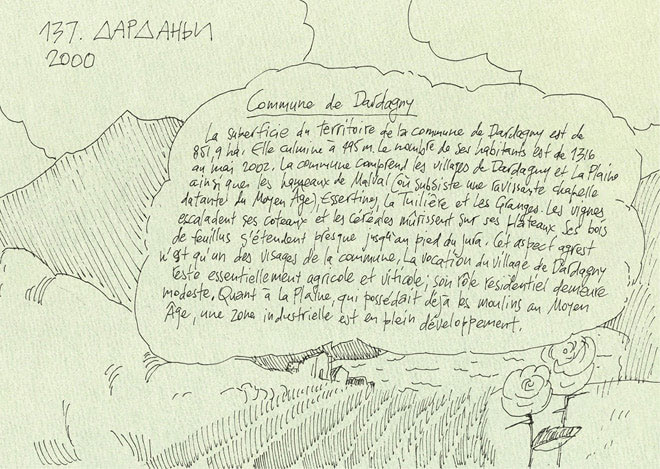 137. ДАРДАНЬИ
2000
Commune de Dardagny
La superficie du territoire de la commune de Dardagny est de
851,9 ha. Elle culmine à 495 m. Le nombre de ses habitants est de 1316
au mai 2002. La commune comprend les villages de Dardagny et La Plaine
ainsi que les hameaux de Malval (où subsiste une ravissante chapelle
datante du Moyen Âge), Essertines, la Tuilière et les Granges. Les vignes
escaladent ses coteaux et les céréales mûrissent sur ses plateaux. Ses bois
de feuillus s'étendent presque jusqu'au pied du Jura. Cet aspect agrest
n'est qu'un des visages de la commune. La vocation du village de Dardagny
reste essentiellement agricole et viticole; son rôle résidentiel demeure
modeste. Quant à La Plaine, qui possédait déjà les moulins au Moyen
Âge, une zone industrielle est en plein développement.